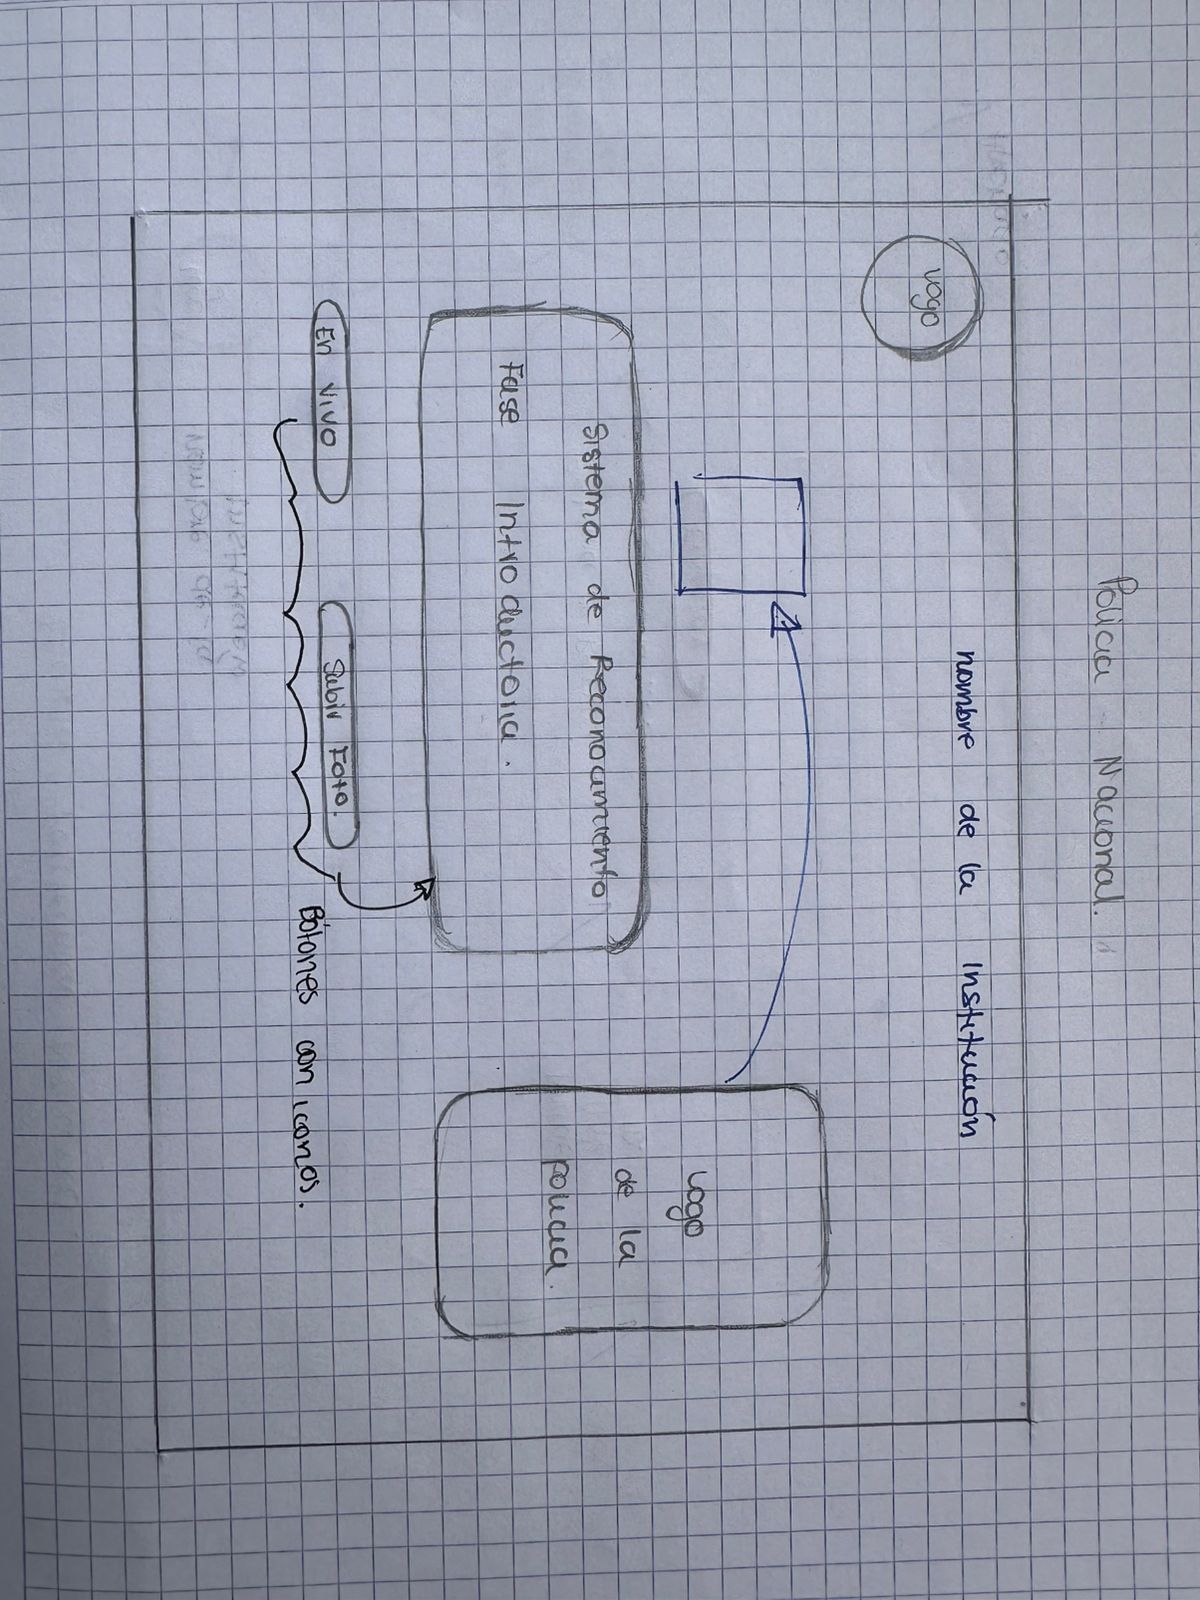 Policia Nacional.
nombre de la Institución
Logo
Sistema de Reconocimiento
Fase Introductoria.
Logo
de la
policia.
En vivo
Subir Foto.
Botones con iconos.